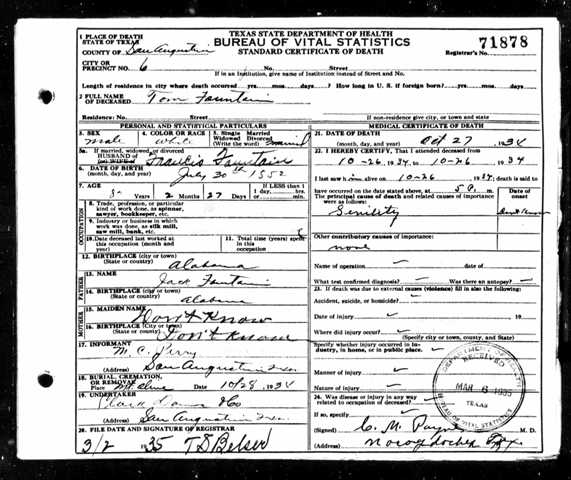 TEXAS STATE DEPARTMENT OF HEALTH
BUREAU OF VITAL STATISTICS
STANDARD CERTIFICATE OF DEATH
71878
Registrar's No.
1 PLACE OF DEATH
STATE OF TEXAS
COUNTY OF San Augustine
CITY OR
PRECINCT NO. 6 No. Street
If in an Institution, give name of Institution instead of Street and No.
Length of residence in city where death occurred yrs. mos. days? How long in U. S. if foreign born? yrs. mos. days
2 FULL NAME
OF DECEASED Tom Fountain
Residence: No. Street
If non-residence give city, or town and state
PERSONAL AND STATISTICAL PARTICULARS
3. SEX
male
4. COLOR OR RACE
White
5. Single Married
Widowed Divorced
(Write the word) married
5a. If married, widowed or divorced
HUSBAND OF
(or) WIFE OF Francis Fountain
6. DATE OF BIRTH
(month, day, and year) July 30th 1852
7. AGE
82 Years 2 Months 27 Days
If LESS than 1
1 day, hrs.
or min.
OCCUPATION
8. Trade, profession, or particular
kind of work done, as spinner,
sawyer, bookkeeper, etc.
9. Industry or business in which
work was done, as silk mill,
saw mill, bank, etc.
10. Date deceased last worked at
this occupation (month and
year)
11. Total time (years)
spent in this
occupation
12. BIRTHPLACE (city or town)
(State or country) Alabama
FATHER
13. NAME Jack Fountain
14. BIRTHPLACE (city or town)
(State or country) Alabama
MOTHER
15. MAIDEN NAME Don't Know
16. BIRTHPLACE (City or town)
(State or country) Don't Know
17. INFORMANT M. C.
San Augustine Texas
18. BURIAL, CREMATION,
OR REMOVAL
Place Date 10/28 1934
19. UNDERTAKER
Clark & Co
San Augustine Tex.
20. FILE DATE AND SIGNATURE OF REGISTRAR
3/2 1935 T S Belser
MEDICAL CERTIFICATE OF DEATH
21. DATE OF DEATH
(month, day, and year) Oct 27, 1934
22. I HEREBY CERTIFY, That I attended deceased from
10-26, 1934, to 10-26, 1934
I last saw him alive on 10-26 1934; death is said to
have occurred on the date stated above, at 5 P. m.
The principal cause of death and related causes of importance
were as follows:
Date of
onset
Senility
Don't Know
Other contributory causes of importance:
none
Name of operation date of
What test confirmed diagnosis? Was there an autopsy?
23. If death was due to external causes (violence) fill in also the following:
Accident, suicide, or homicide?
Date of injury , 19
Where did injury occur?
(Specify city or town, county, and State)
Specify whether injury occurred in Industry, in home, or in public place.
Manner of injury
Nature of injury
24. Was disease or injury in any way
related to occupation of deceased?
If so, specify
(Signed) C. M. Payne M. D.
(Address) Nacogdoches Tex.
DEPARTMENT OF HEALTH
RECEIVED
MAR 6 1935
TEXAS
BUREAU OF VITAL STATISTICS